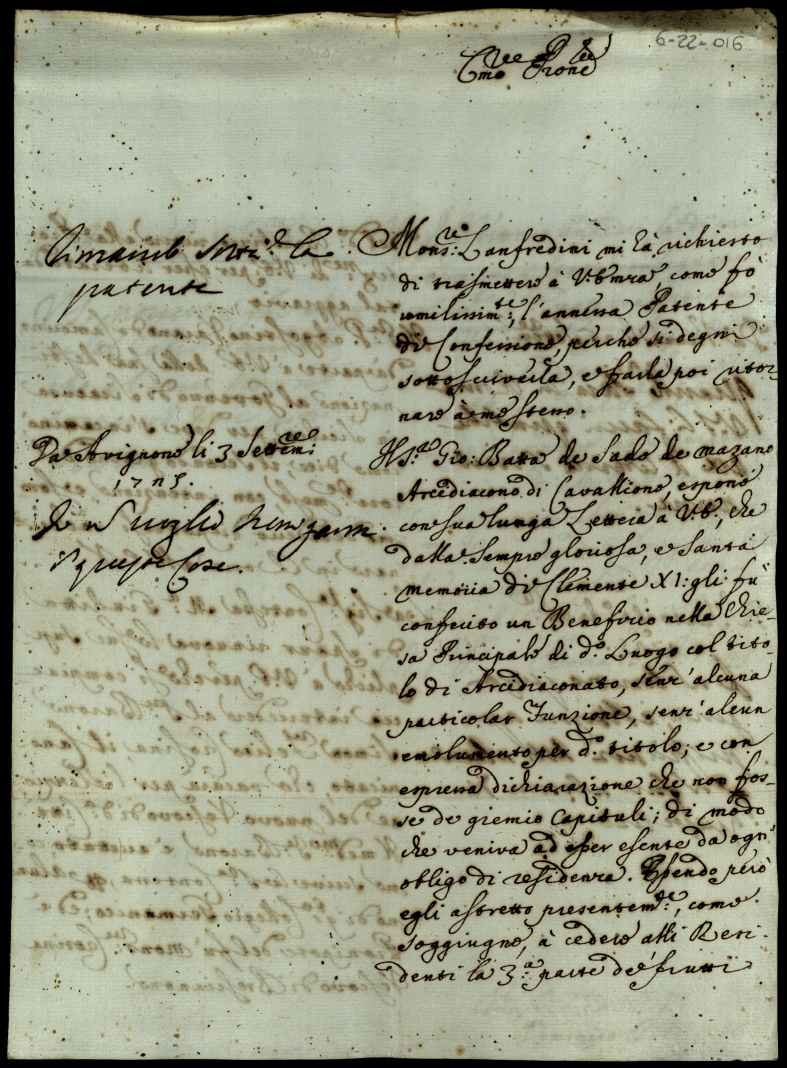 6-22-016
Em͞o e Pron͞e
Rimando la
patente
Mons:re Lanfredini mi hà richiesto
di trasmettere à V:Emza, come fò
umilissim:te, l'annessa Patente
di Confessione, perche si degni
sottoscriverla, e farla poi ritor-
nare à me stesso.
Da Avignone li 3 Settem:re
1725.
Il S:r Gio: Batta de Sade de Mazano
Arcidiacono di Cavallione, espone
con sua lunga Lettera à V:E, che
dalla sempre gloriosa, e Santa
memoria di Clemente XI: gli fù
conferito un Beneficio nella Chie-
sa Principale di d:o Luogo col tito-
lo di Arcidiaconato, senz'alcuna
particolar Funzione, senz'alcun
emolumento per d:o titolo; e con
espressa dichiarazione che non fos-
se de gremio Capituli; di modo
che veniva ad esser esente da ogni
obligo di residenza. Essendo però
egli astretto presentem:te, come
soggiugne, à cedere alli Resi
denti la 3:a parte de' frutti